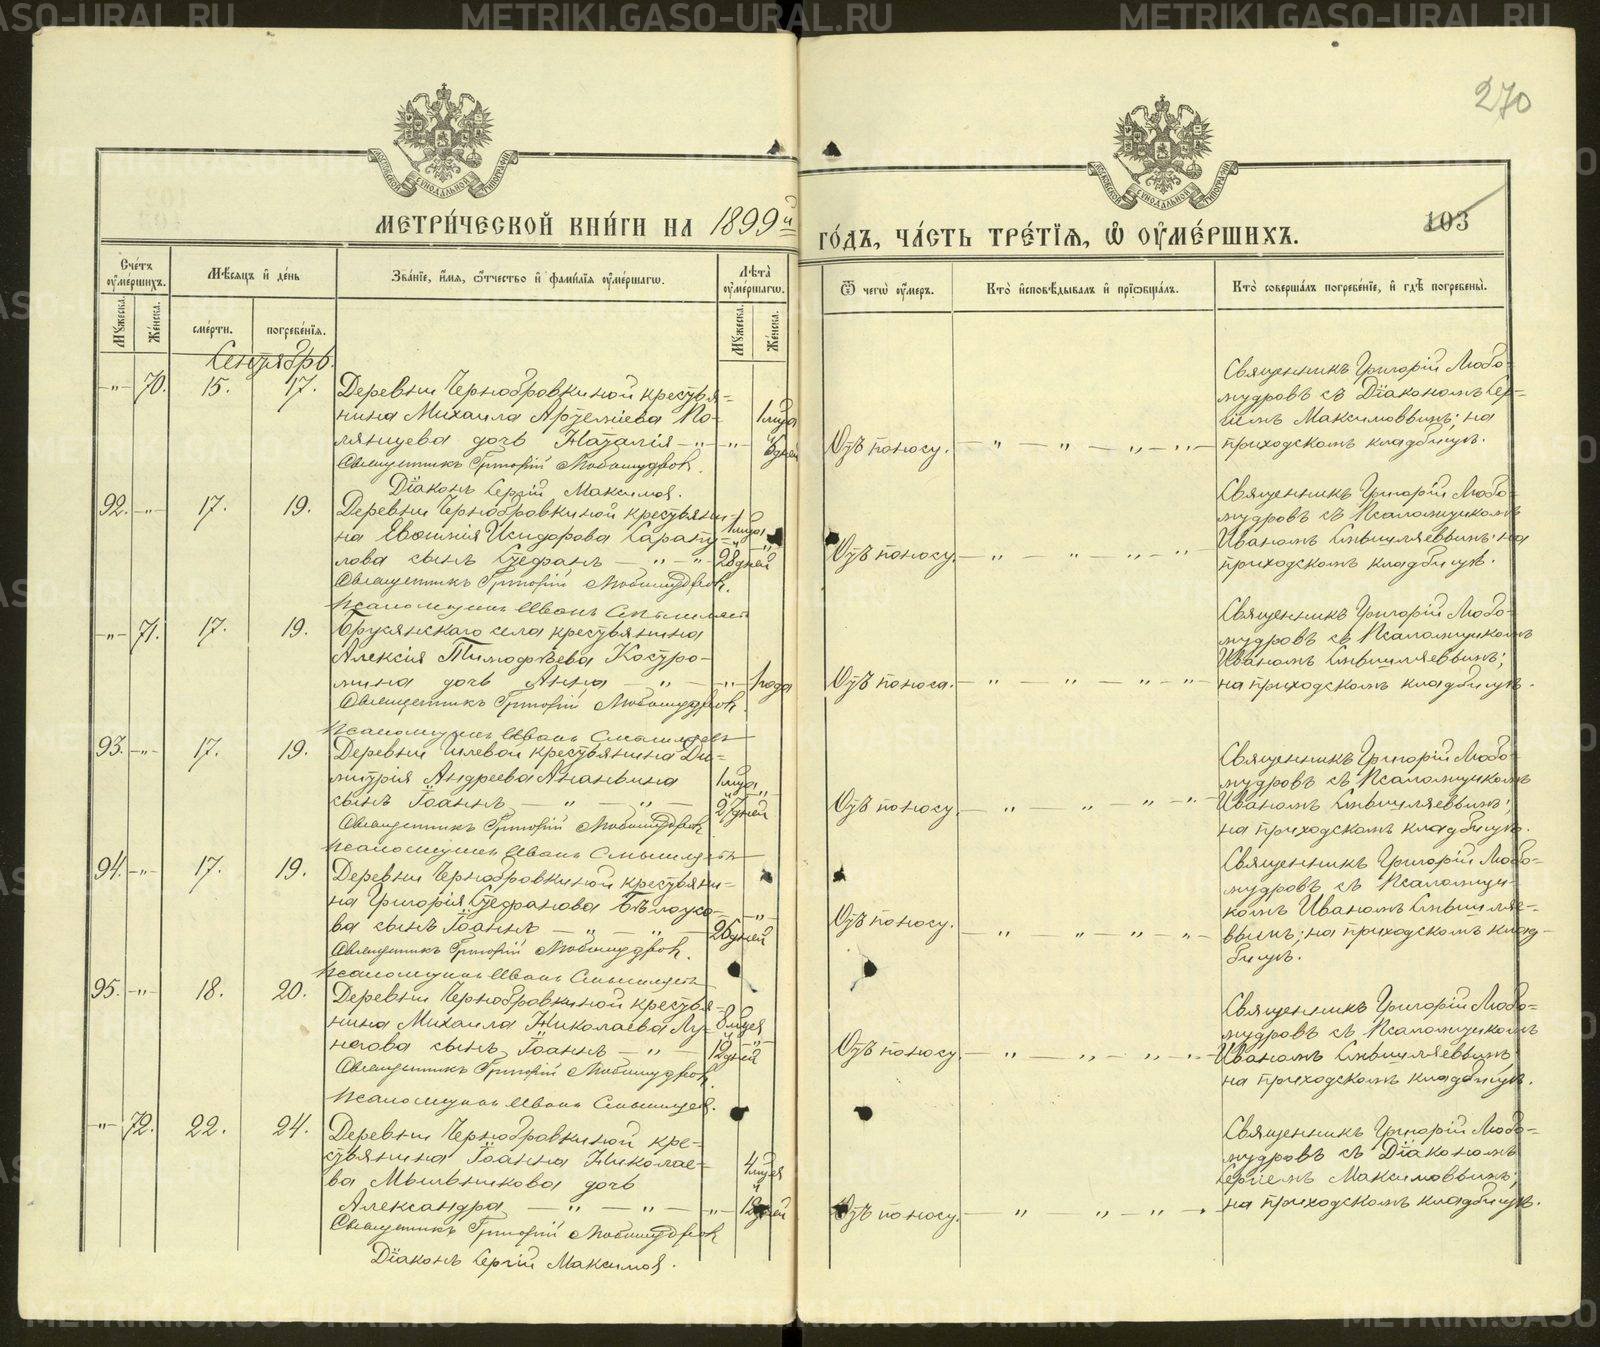 270
МЕТРИ́ЧЕСКОЙ КНИ́ГИ НА 1899й
ГО́ДЪ, ЧА́СТЬ ТРЕ́ТІѦ, Ѡ҆ ОУ҆МЕ́РШИХЪ.
103
Сче́тъ оу҆ме́ршихъ.
Мѣ́сѧцъ и҆ де́нь
Зва́нїе, и҆́мѧ, ѻ҆́тчество и҆ фами́лїѧ оу҆ме́ршагѡ.
Лѣ́та оу҆ме́ршагѡ.
Ѿ чегѡ̀ оу҆́меръ.
Кто̀ и҆сповѣ́дывалъ и҆ прїѡбща́лъ.
Кто̀ соверша́лъ погребе́нїе, и҆ гдѣ̀ погребены̀.
Мꙋ́жеска. Же́нска. сме́рти. погребе́нїя. Мꙋ́жеска. Же́нска.
Сентябрь.
-"- 70. 15. 17.
Деревни Чернобровкиной крестья-
нина Михаила Артемiева По-
лянцева дочь Наталія -"-
Священникъ Григорій Любомудровъ.
Діаконъ Сергій Максимов.
1 мца и 5 дней
Отъ поносу.
Священникъ Григорій Любо-
мудровъ съ Діакономъ Сер-
гіемъ Максимовымъ; на
приходскомъ кладбищѣ.
92. -"- 17. 19.
Деревни Чернобровкиной крестьяни-
на Евѳимія Исидорова Сарапу-
лова сынъ Стефанъ -"-
Священникъ Григорій Любомудровъ.
Псаломщикъ Иванъ
1 мца и 28 дней
Отъ поносу.
Священникъ Григорій Любо-
мудровъ съ Псаломщикомъ
Иваномъ на
приходскомъ кладбищѣ.
-"- 71. 17. 19.
Брусянскаго села крестьянина
Алексія Тимофѣева Костро-
мина дочь Анна -"-
Священникъ Григорій Любомудровъ.
Псаломщикъ Иванъ
1 года
Отъ поноса.
Священникъ Григорій Любо-
мудровъ съ Псаломщикомъ
Иваномъ
на приходскомъ кладбищѣ.
93. -"- 17. 19.
Деревни крестьянина Ди-
митрія Андреева Ананьина
сынъ Іоаннъ -"- -"-
Священникъ Григорій Любомудровъ
Псаломщикъ Иванъ
1 мца и 27 дней
Отъ поносу.
Священникъ Григорій Любо-
мудровъ съ Псаломщикомъ
Иваномъ
на приходскомъ кладбищѣ.
94. -"- 17. 19.
Деревни Чернобровкиной крестьяни-
на Григорія Стефанова Бѣлоусо-
ва сынъ Іоаннъ -"- -"-
Священникъ Григорій Любомудровъ.
Псаломщикъ Иванъ
26 дней
Отъ поносу.
Священникъ Григорій Любо-
мудровъ съ Псаломщи-
комъ Иваномъ
вымъ; на приходскомъ клад-
бищѣ.
95. -"- 18. 20.
Деревни Чернобровкиной крестья-
нина Михаила Николаева Лу-
сынъ Іоаннъ -"-
Священникъ Григорій Любомудровъ.
Псаломщикъ Иванъ
8 мцев и 12 дней
Отъ поносу.
Священникъ Григорій Любо-
мудровъ съ Псаломщикомъ
Иваномъ
на приходскомъ кладбищѣ.
-"- 72. 22. 24.
Деревни Чернобровкиной кре-
стьянина Іоанна Николае-
ва Мыльникова дочь
Александра -"- -"-
Священникъ Григорій Любомудровъ
Діаконъ Сергій Максимов.
4 мцея и 12 дней
Отъ поносу.
Священникъ Григорій Любо-
мудровъ съ Діакономъ
Сергіемъ Максимовымъ;
на приходскомъ кладбищѣ.
METRIKI.GASO-URAL.RU